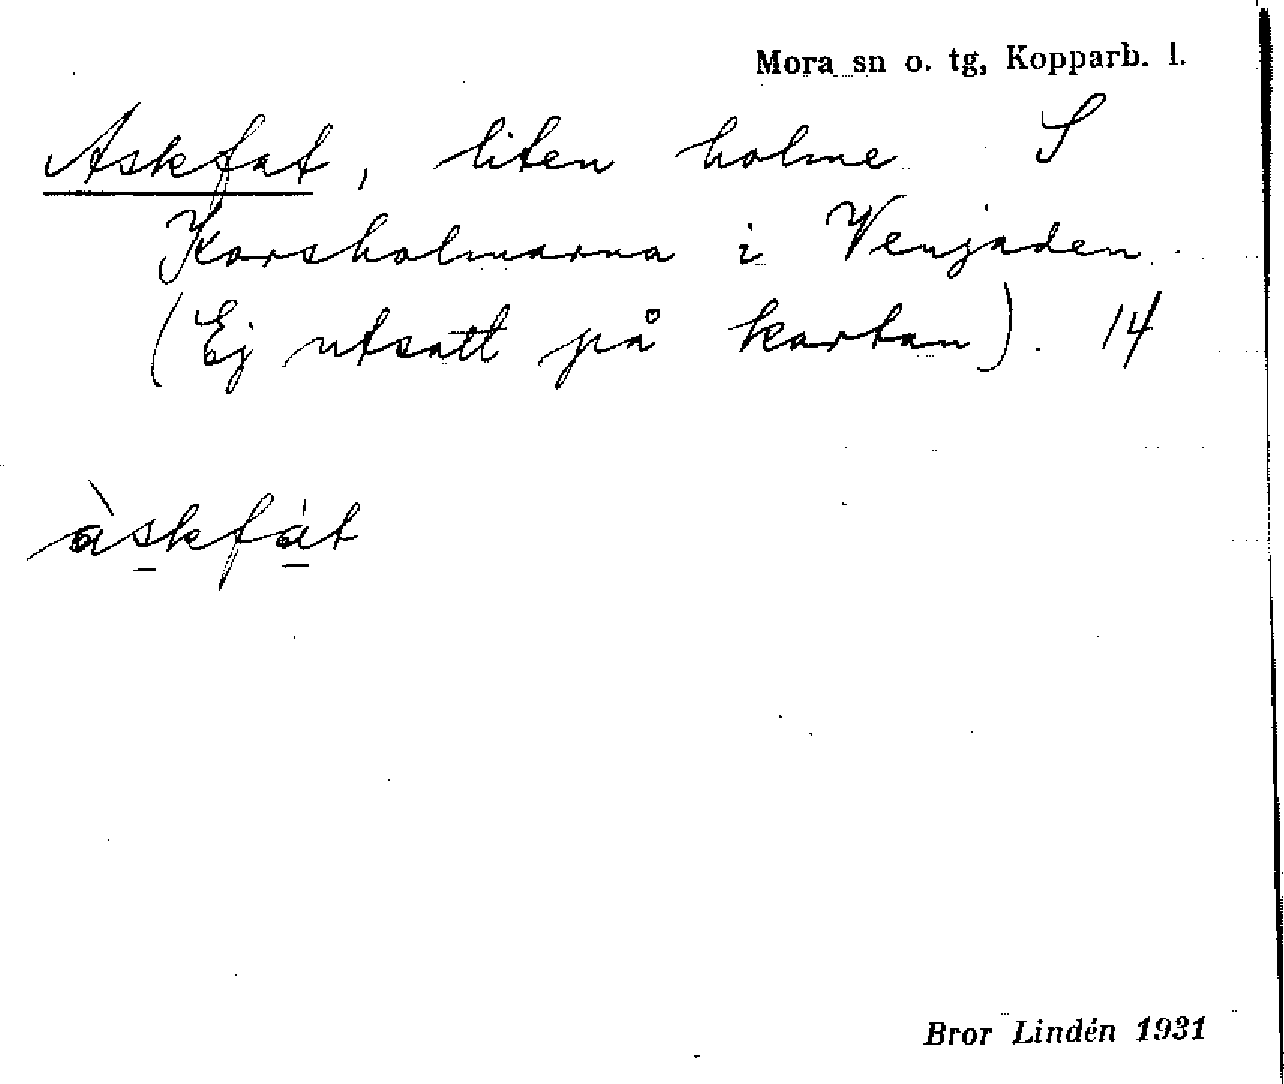 Mora sn o. tg, Kopparb. l.
Askfat, liten holme S
Korsholmarna i Venjaden.
(Ej utsatt på kartan). 14
àskfát
Bror Lindén 1931